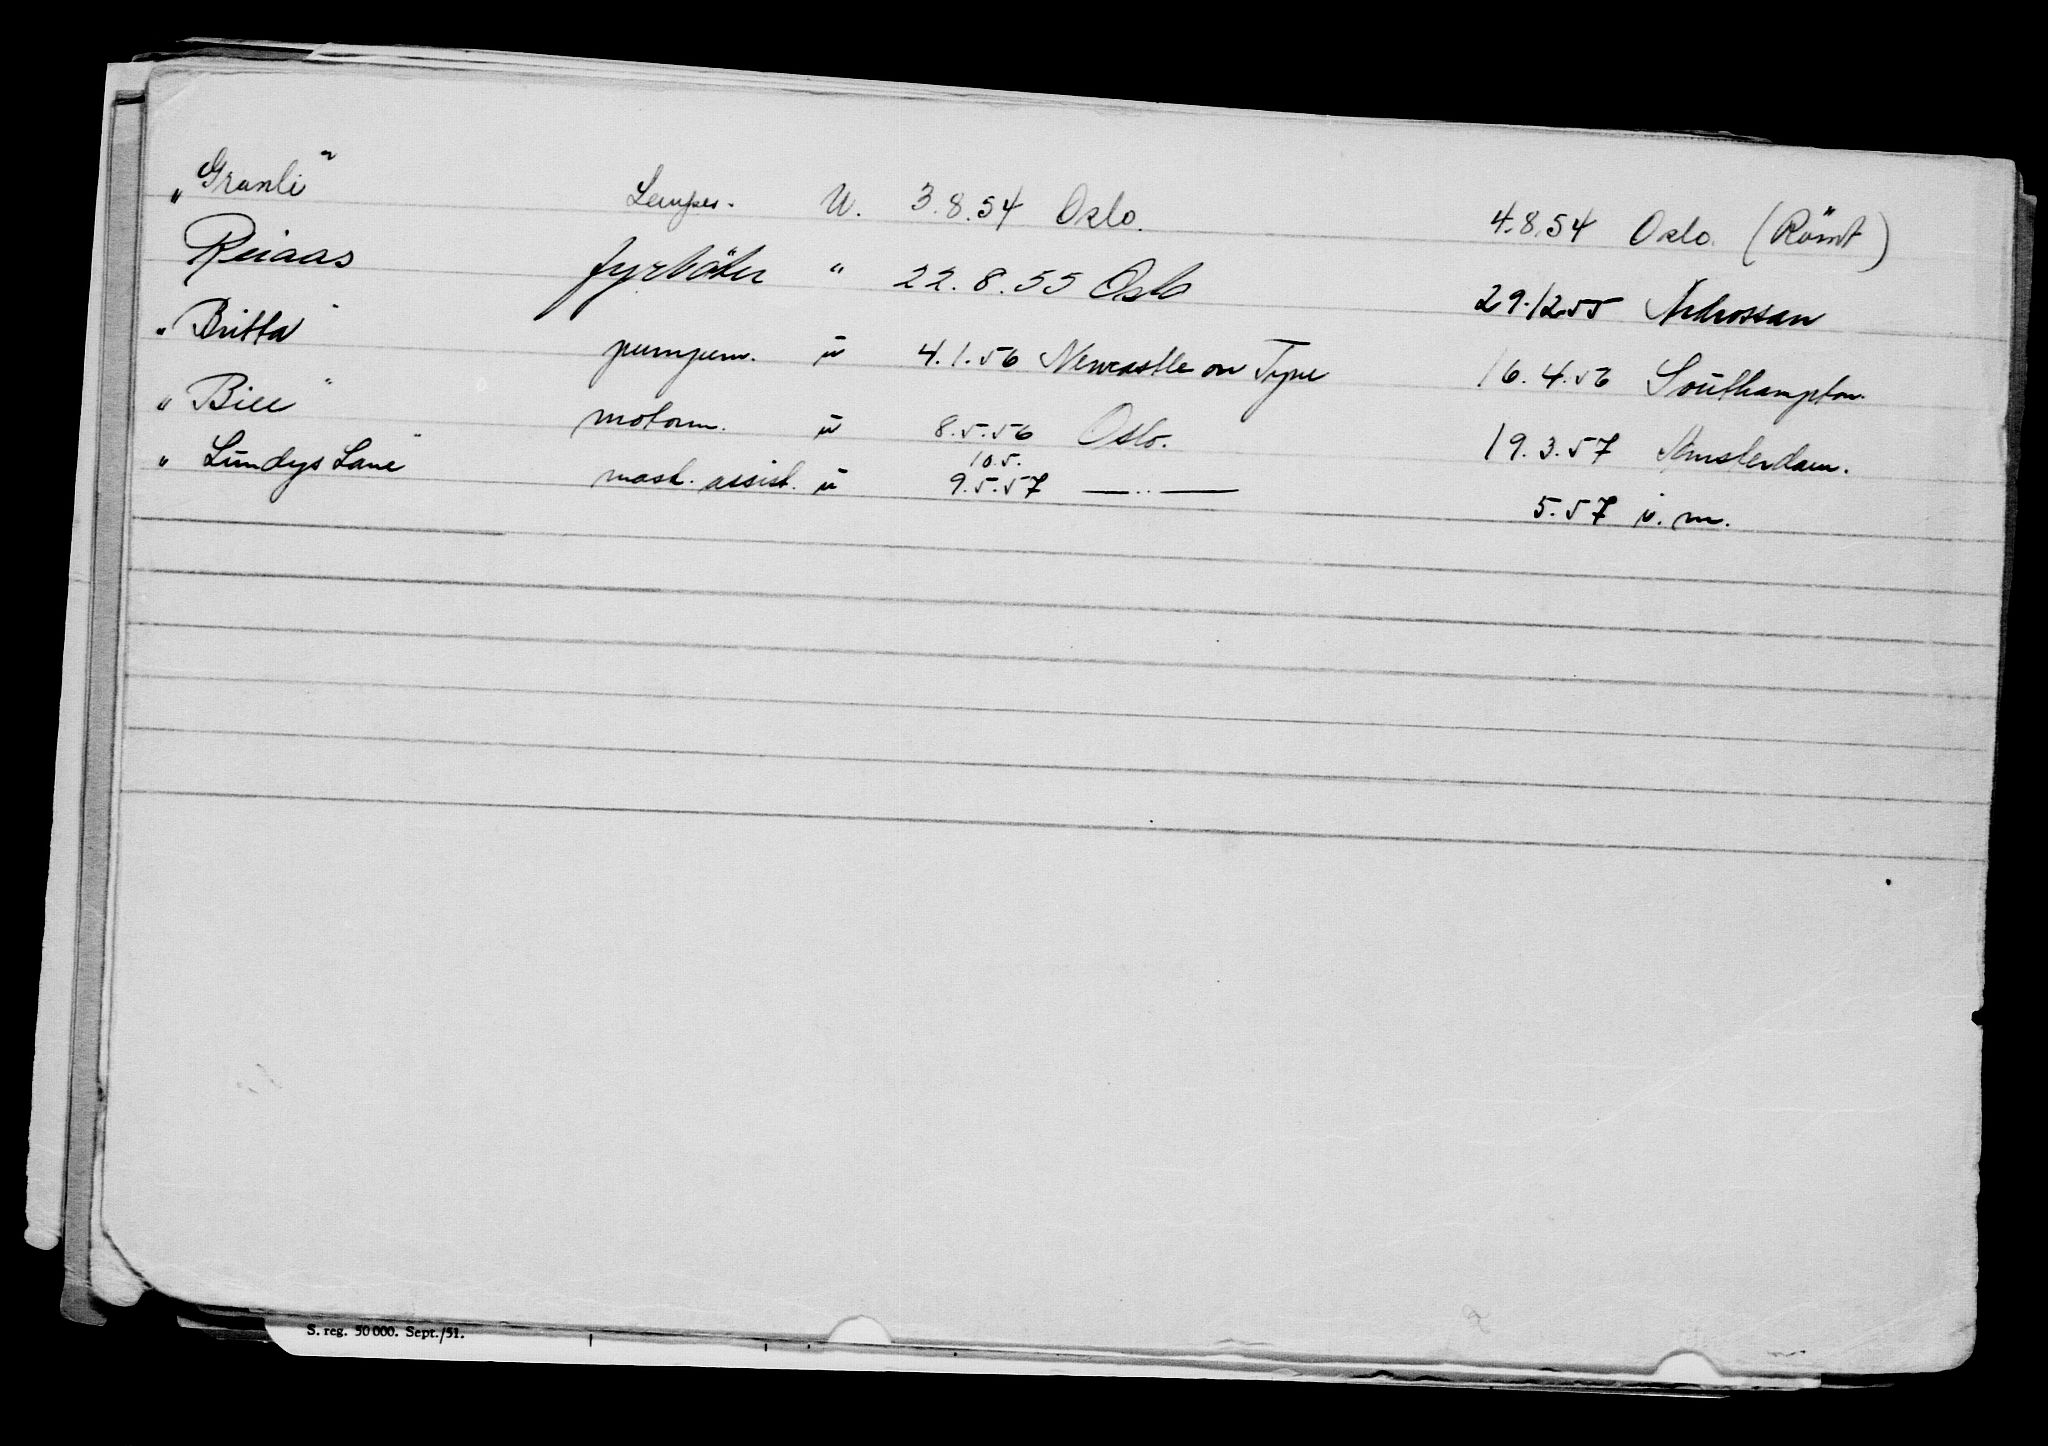 „Granli" Lemper. U. 3.8.54 Oslo. 4.8.54 Oslo. (Römt)
Reiaas fyrböter " 22.8.55 Oslo 29.12.55 Ardrossan
„Britta" pumpem. u 4.1.56 Newcastle on Tyne 16.4.56 Southampton.
„Bill" motorm. u 8.5.56 Oslo. 19.3.57 Amsterdam.
10.5.
„Lundys Lane" mask. assist. u 9.5.57 —„— 5.57 i.m.
S. reg. 50 000. Sept./51.